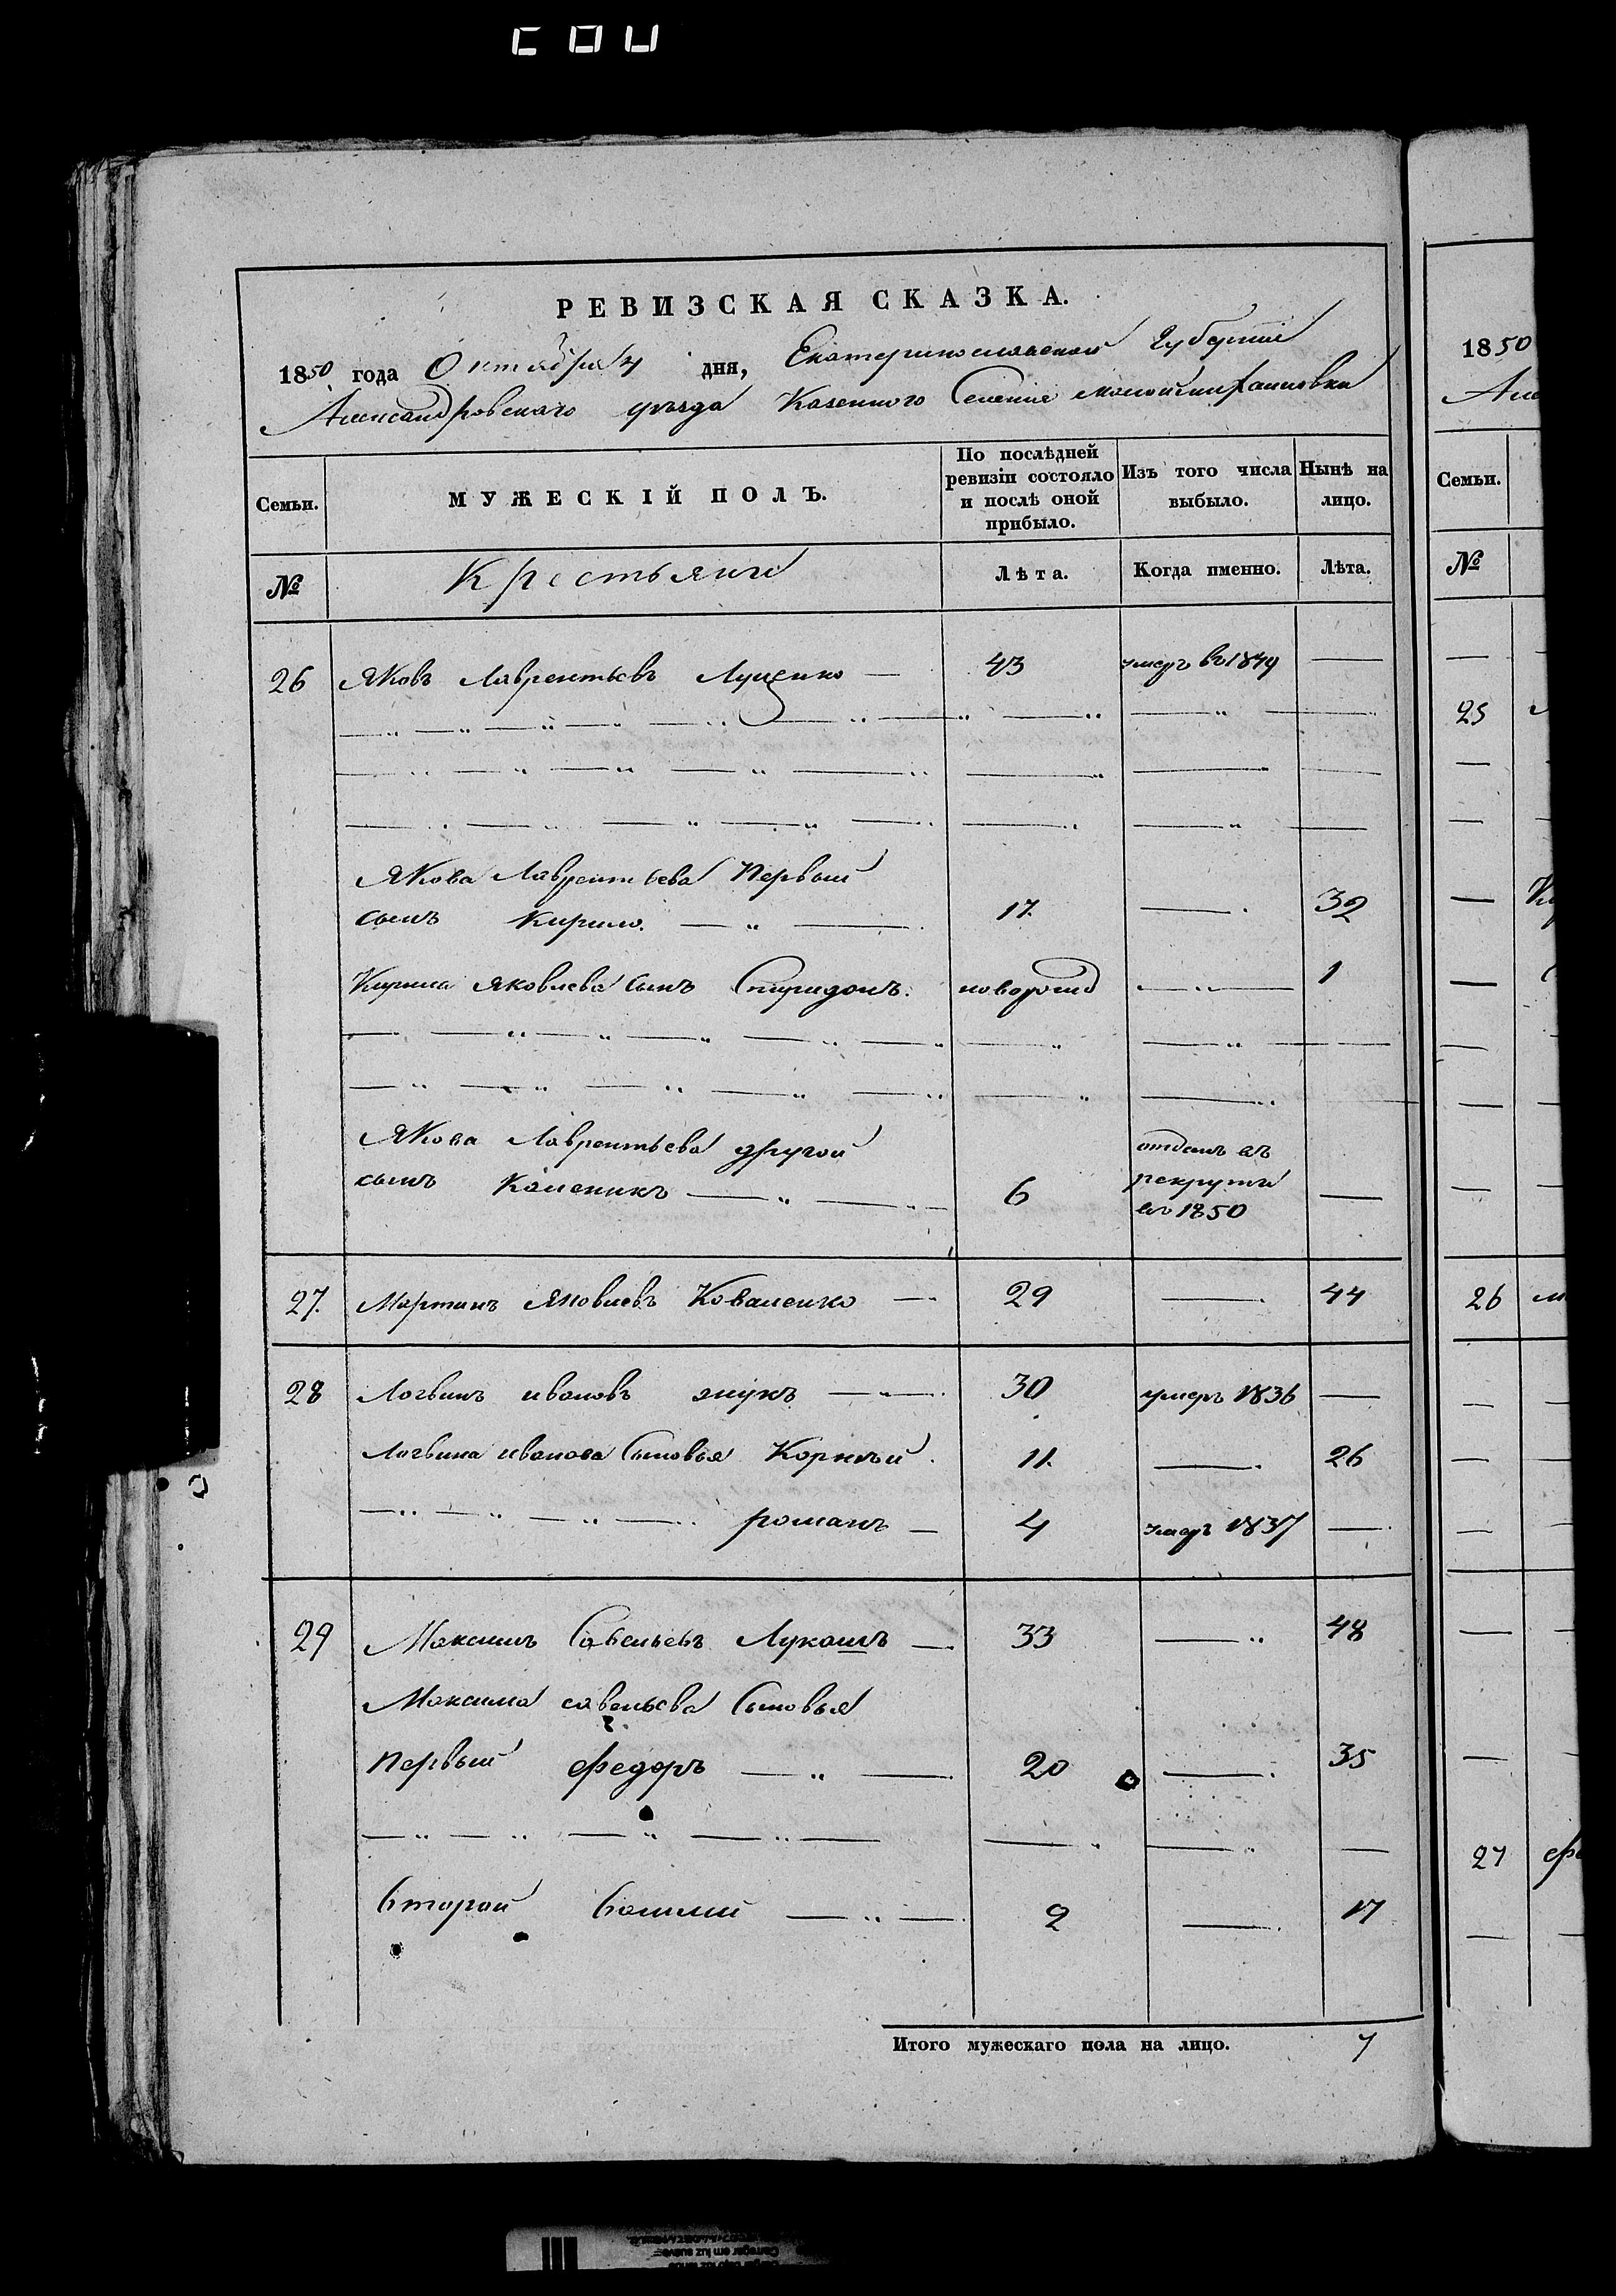 РЕВИЗСКАЯ СКАЗКА.
1850 года Октября 4 дня, Екатеринославской Губернии
Александровского уезда Казенного Селение
Семьи.
МУЖЕСКІЙ ПОЛЪ.
По послѣдней
ревизіи состояло
и послѣ оной
прибыло.
Изъ того числа
выбыло.
Нынѣ на
лицо.
№
Крестьяне
Лѣта.
Когда именно.
Лѣта.
26 Яковъ Лаврентьевъ Луценко — 43 умеръ въ 1849 —
Якова Лаврентьева Первый
сынъ Кирило. — 17. — 32
Кирила Яковлева Сынъ Спиридонъ. новорожд — 1
Якова Лаврентьева другой
сынъ Каленикъ — 6 отданъ въ
рекруты
въ 1850 —
27. Мартинъ Яковлевъ Коваленко — 29 — 44
28 Логвинъ ивановъ — 30 умеръ 1836 —
Логвина иванова Сыновья Корнѣй. 11. — 26
романъ — 4 умеръ 1837 —
29 Максимъ Савельевъ Лукашъ — 33 — 48
Максима савельева Сыновья
первый федоръ — 20 — 35
второй — 2 — 17
Итого мужескаго пола на лицо. 7
1850
Але
Семьи.
№
25
26
27